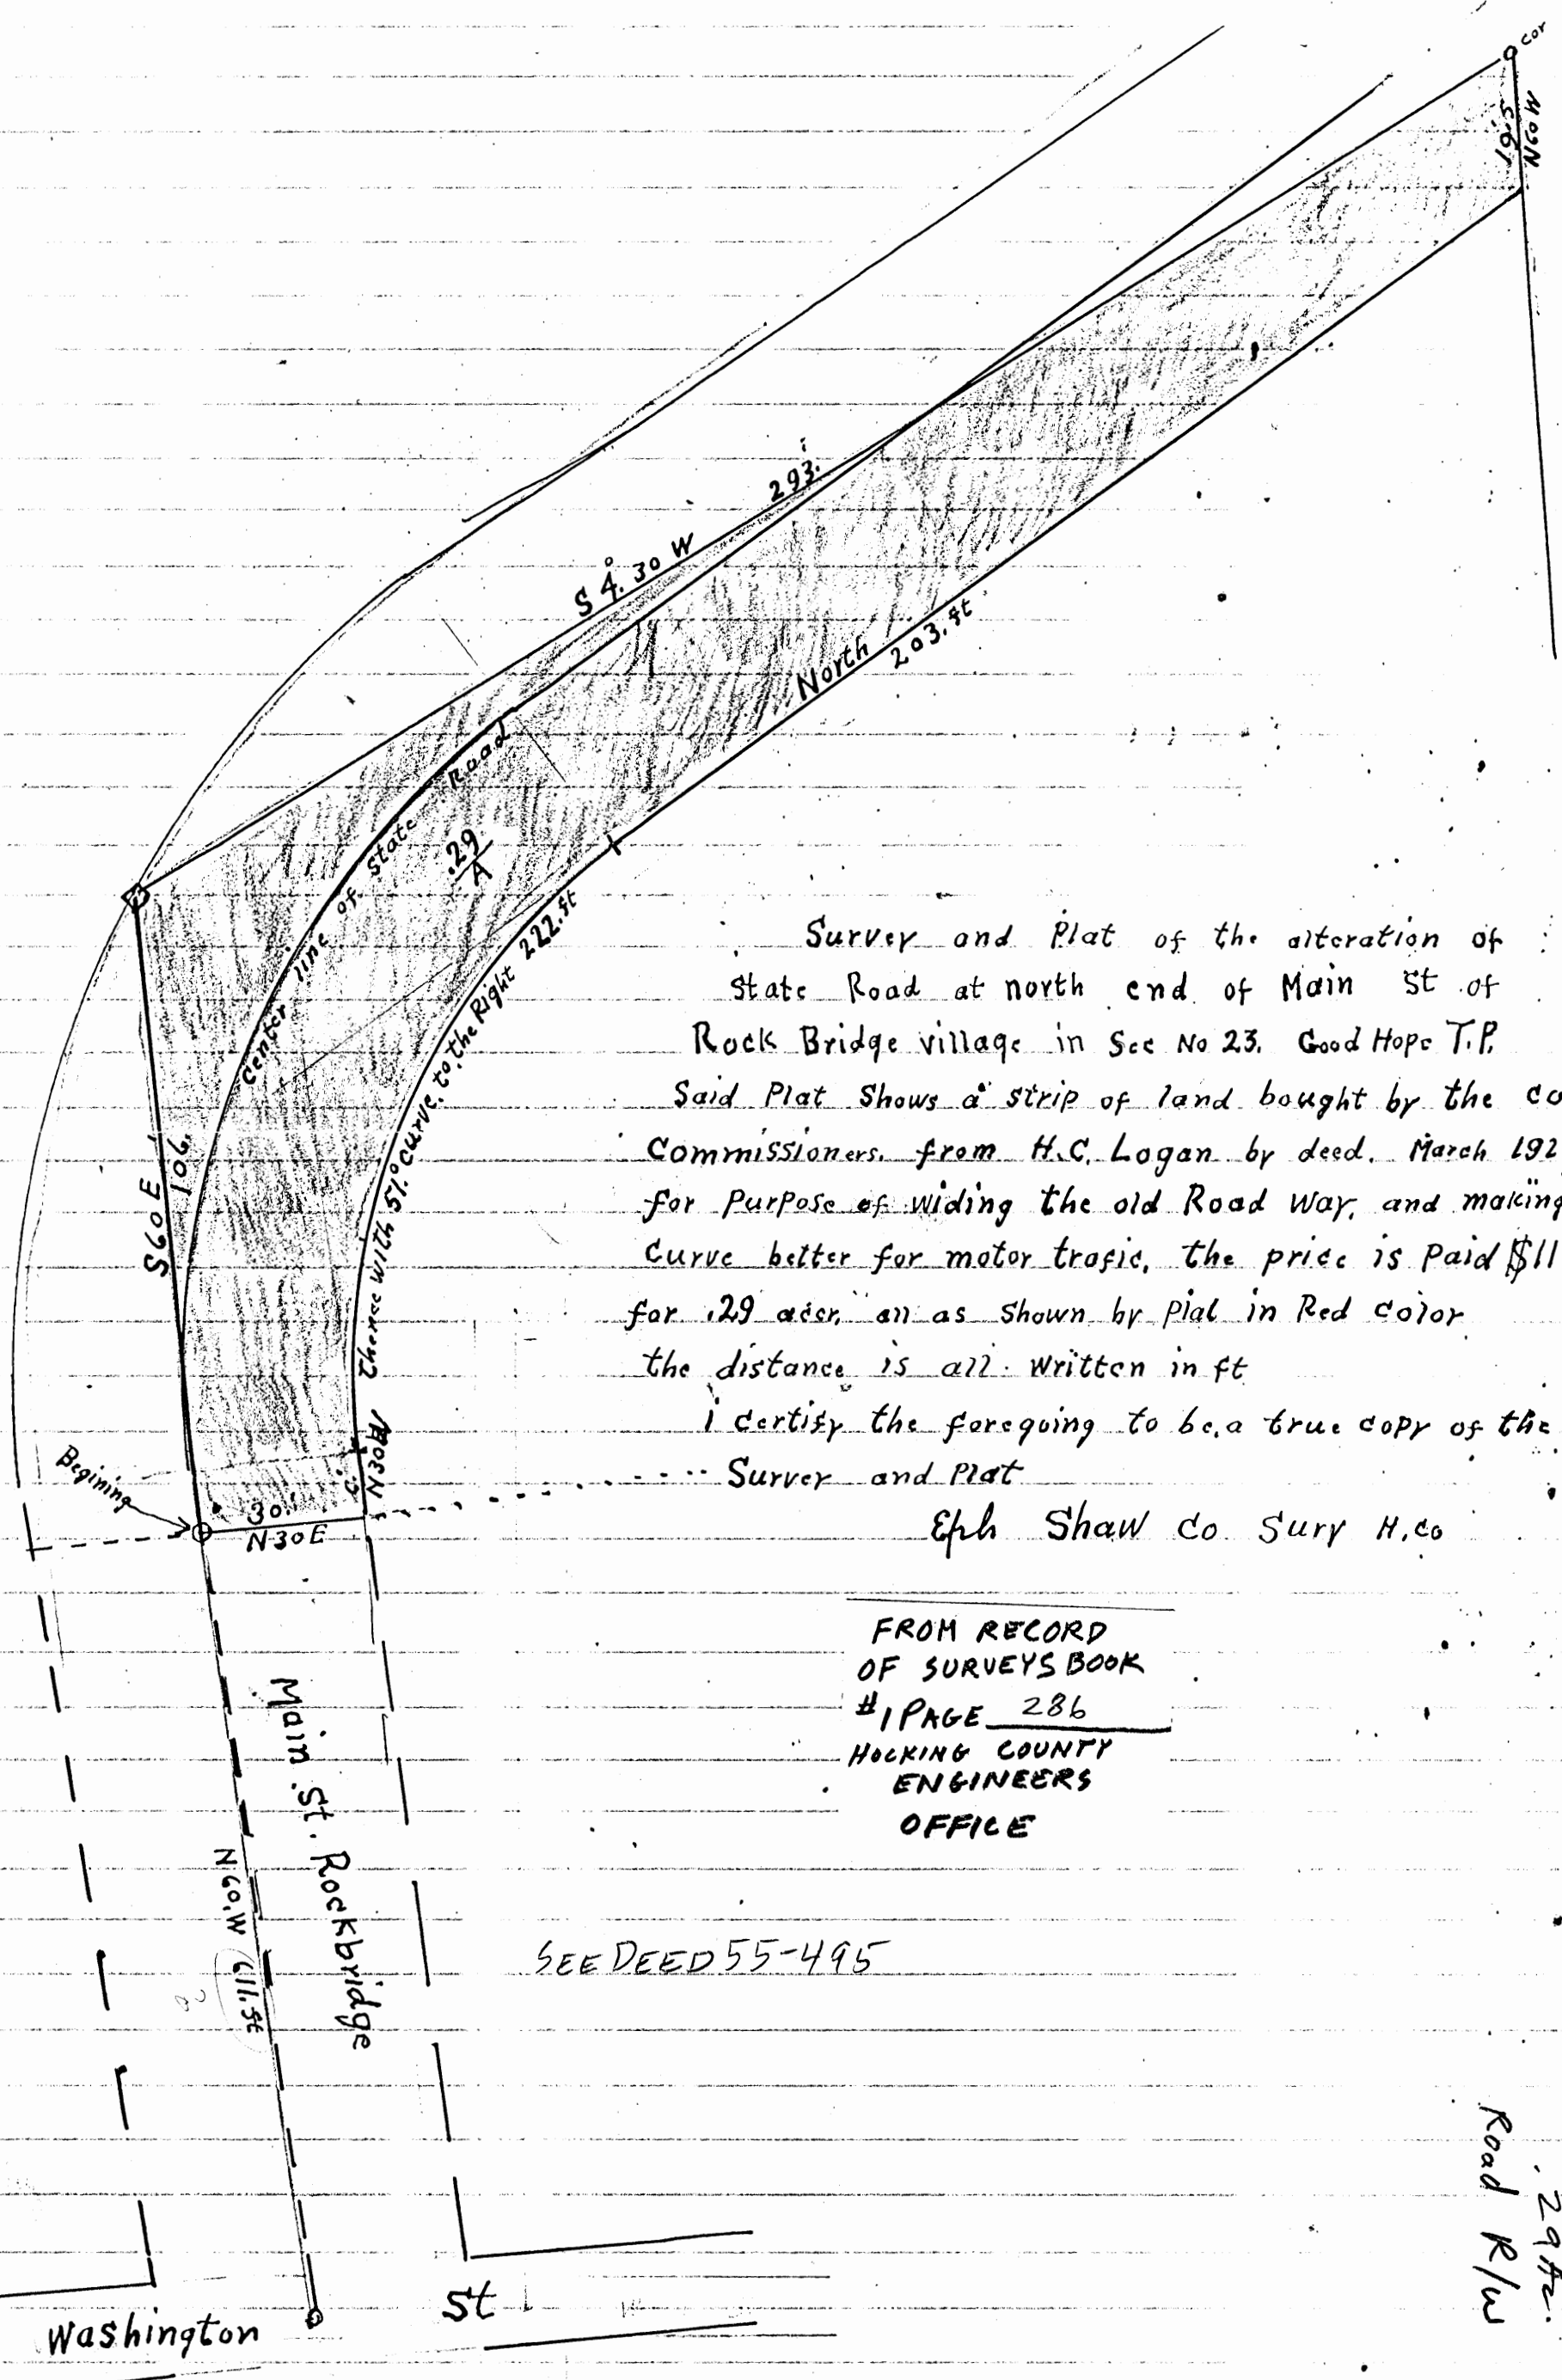 cor
19.5
N60W
293.
S 4.°30 W
North 203. ft
Center line of State Road
.29
A
Thence with 51.° curve to the Right 222. ft
S60 E
106.
N30W
Begining
30.
N30E
Survey and Plat of the alteration of
State Road at north end of Main St of
Rock Bridge village in Sec No 23. Good Hope T.P.
Said Plat Shows a strip of land bought by the co
Commissioners. from H.C. Logan by deed. March 192
for Purpose of widing the old Road way, and making
Curve better for motor trafic, the price is Paid $11
for .29 accr. all as Shown by Plat in Red color
the distance is all written in ft
i certify the foregoing to be a true copy of the
Survey and Plat
Eph Shaw Co Sury H.co
FROM RECORD
OF SURVEYS BOOK
#1 PAGE 286
HOCKING COUNTY
ENGINEERS
OFFICE
Main St. Rockbridge
N60.W 611.ft
SEE DEED 55-495
.29 Ac.
Road R/W
Washington St